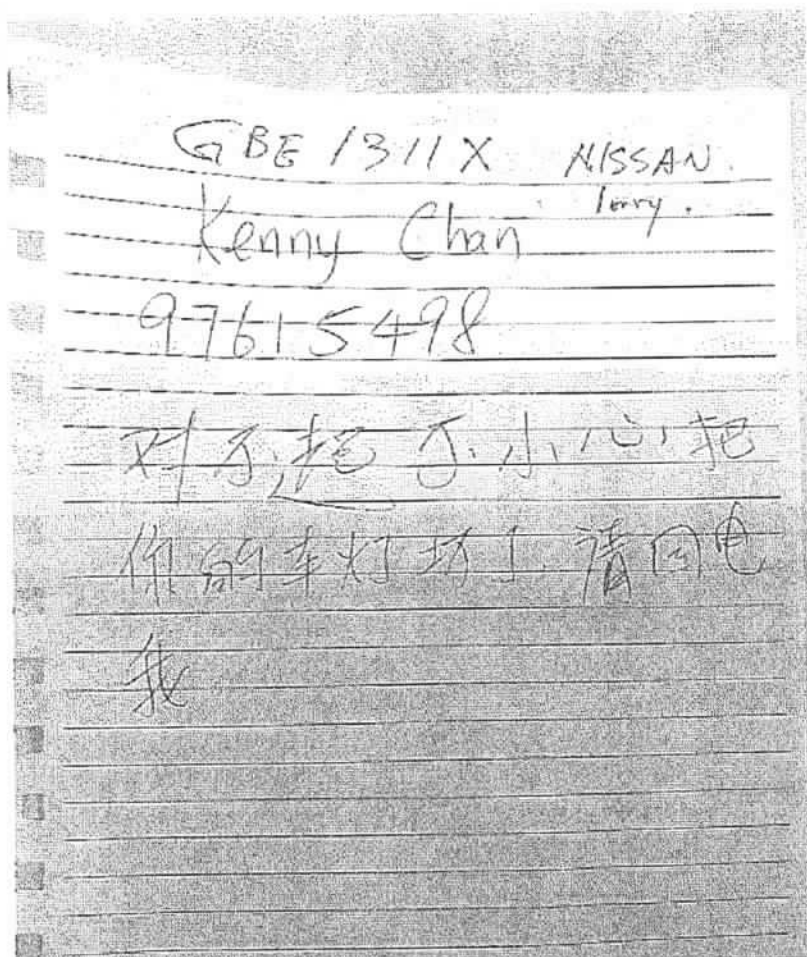 GBE 1311X NISSAN.
lorry.
Kenny Chan
97615498
对不起 不小心把
你的车灯坏了 请回电
我